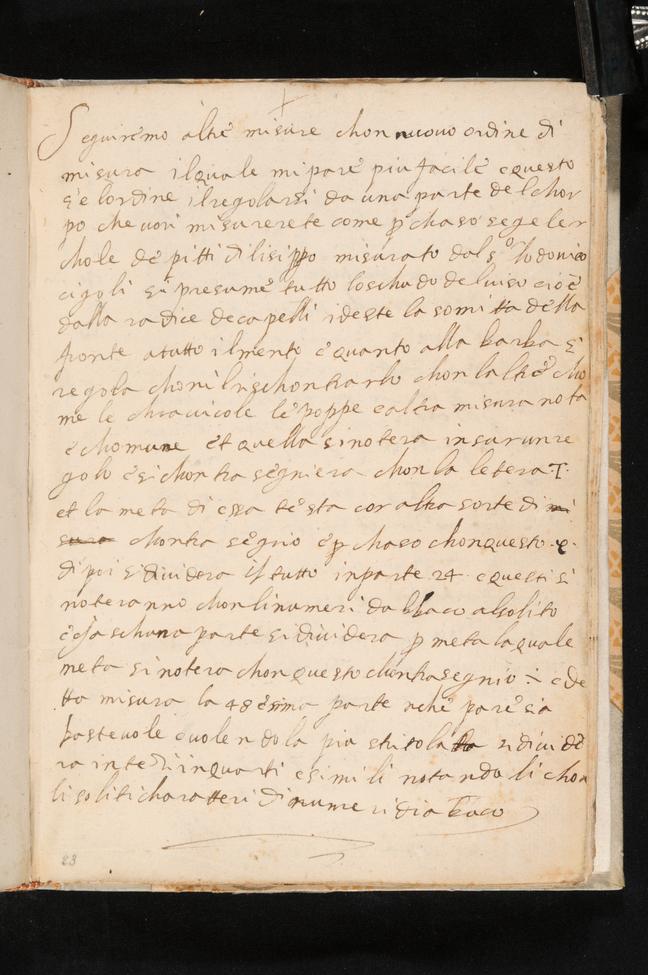 Seguiremo altre misure chon nuovo ordine di
misura il quale mi pare piu facile e questo
s'e l'ordine il regolarsi da una parte del chor
po che vori misurerete come p chaso s'e geler
chole de pitti di lisippo misurato dal s.r lodovico
cigoli si presume tutto loschudo del viso cioè
dalla radice de capelli ideste la somitta della
fronte a tutto il mento e quanto alla barba si
regola chon il rischontrarlo chon laltre cho
me le chiavicole le poppe e altra misura nota
e chomune et quella si notera in sur un re
golo e si chontrasegniera chon la letera T.
et la meta di essa testa cor altra sorte di mi
sura chontra segnio e p chaso chon questo .e.
di poi si dividera il tutto in parte 24 e questi si
noteranno chon li numeri da bbaco al solito
e ciaschuna parte si dividera p meta la quale
meta si notera chon questo chontrasegnio ÷ e de
tta misura la 48esima parte n che pare sia
bastevole e volendola piu stritola si divide
ra in te di in quarti e simili notando li chon
li soliti charatteri di numeri di abaco
23